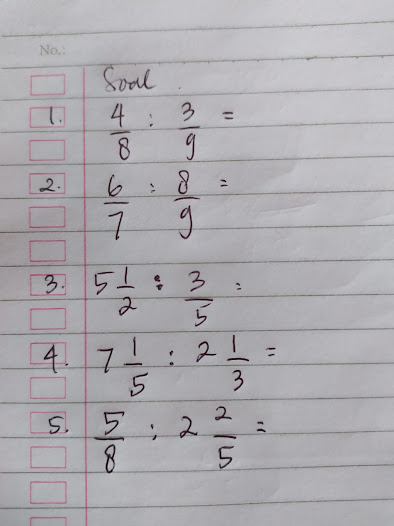 No.:
Soal.
1. 4/8 : 3/9 =
2. 6/7 : 8/9 =
3. 5 1/2 : 3/5 =
4. 7 1/5 : 2 1/3 =
5. 5/8 : 2 2/5 =